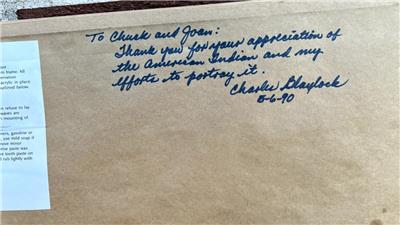 To Chuck and Joan:
Thank you for your appreciation of
the American Indian and my
efforts to portray it.
Charles Blaylock
5-6-90
frame. All
acrylic in place
explained below.
on refuse to lay
mounting of
gasoline or
use mild soap if
remove minor
paste was
tooth paste on
rub lightly with